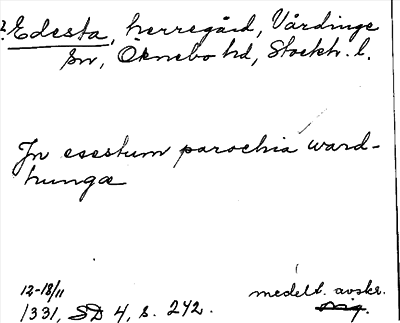 2. Edesta, herregård, Vårdinge
sn, Öknebo hd, Stockh. l.
In esestum parochia ward-
hungæ
12-18/11
1331, SD 4, s. 242.
medelt. avskr.